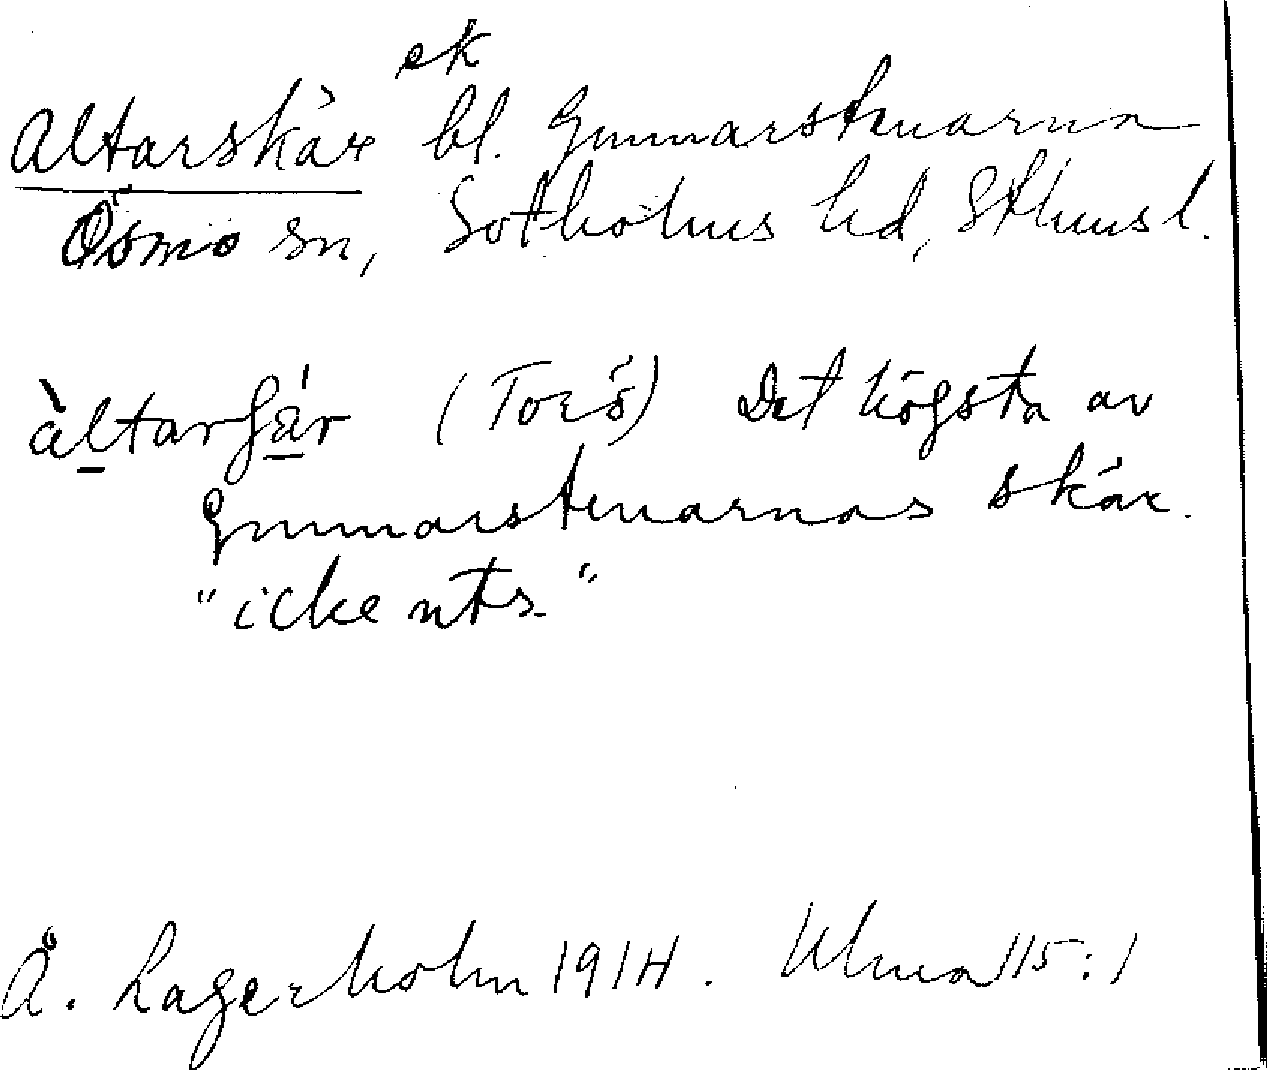 ek
Altarskär bl. Gunnarstenarna
Ösmo sn, Sotholms hd, Sthms l.
àltarʃä́r (Torö) Det högsta av
Gunnarstenarnas skär.
"icke uts."
Å. Lagerholm 1914. Ulma 115:1